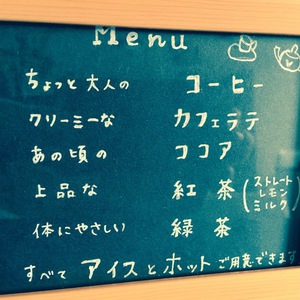 Menu
ちょっと大人の コーヒー
クリーミーな カフェラテ
あの頃の ココア
上品な 紅茶(ストレート レモン ミルク)
体にやさしい 緑茶
すべて アイスとホット ご用意できます